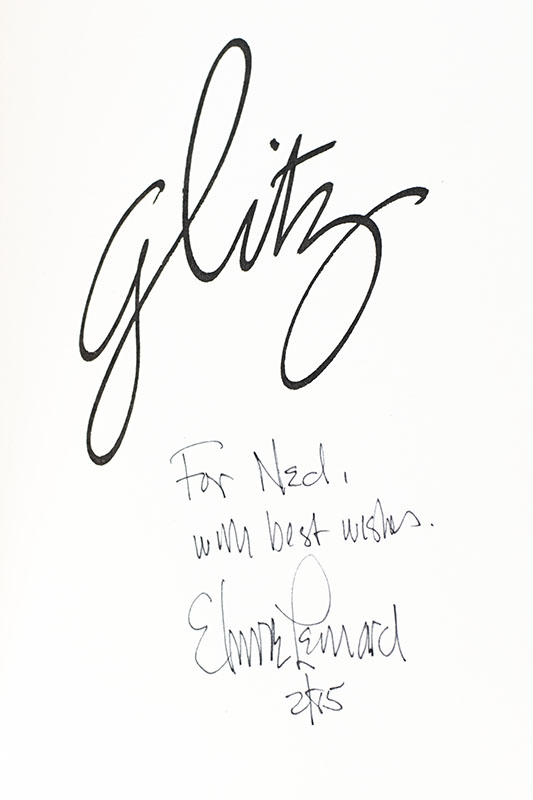 glitz
For Ned,
with best wishes.
Elmore Leonard
2/85